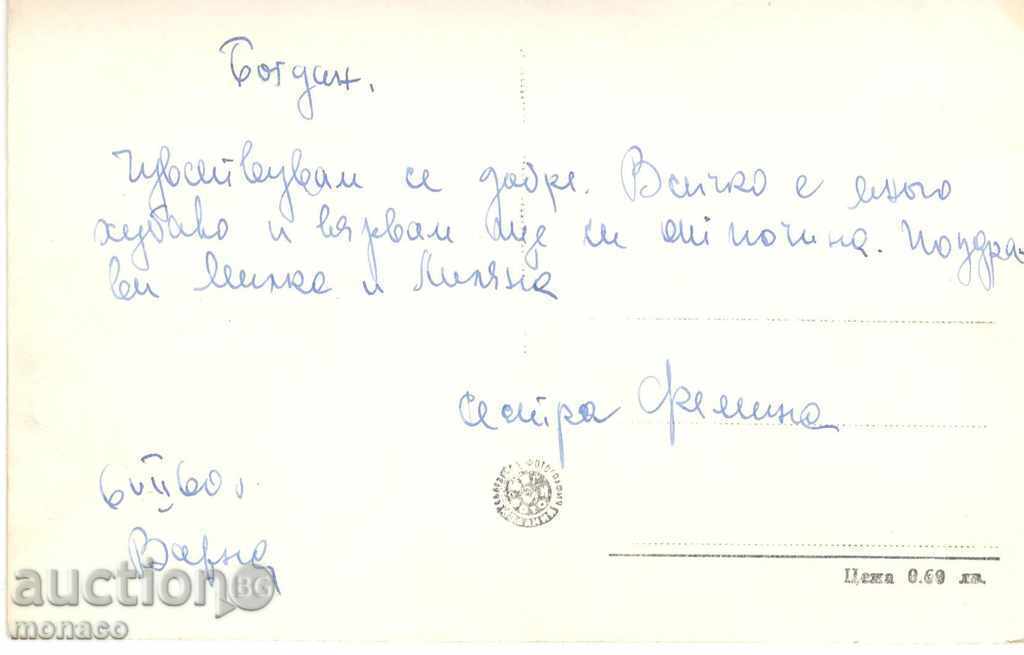 Богдан,
Чувствувам се добре. Всичко е много
хубаво и вярвам ще си отпочина. Поздра-
ви Минка и Лиляна
сестра
Варна
Цена 0.60 лв.
auction BG
monaco